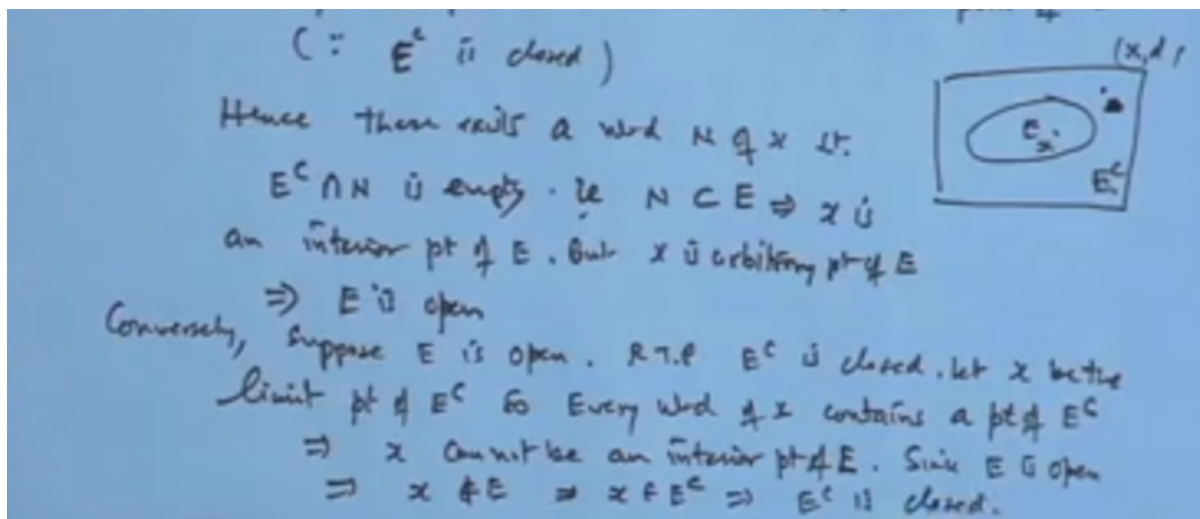 (∵ E^c is closed)
(X, d)
Hence there exists a nbrd N of x st.
E
x
E^c
E^c ∩ N is empty. ie N ⊂ E ⇒ x is
an interior pt of E. But x is arbitrary pt of E
⇒ E is open
Conversely, suppose E is open. R.T.P E^c is closed. Let x be the
limit pt of E^c So Every nbrd of x contains a pt of E^c
⇒ x cannot be an interior pt of E. Since E is open
⇒ x ∉ E ⇒ x ∈ E^c ⇒ E^c is closed.